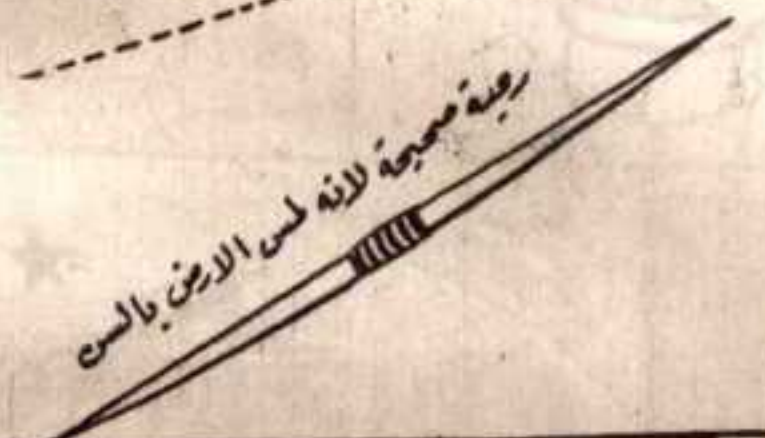 رمية صحيحة لانه لمس الارض بالسن